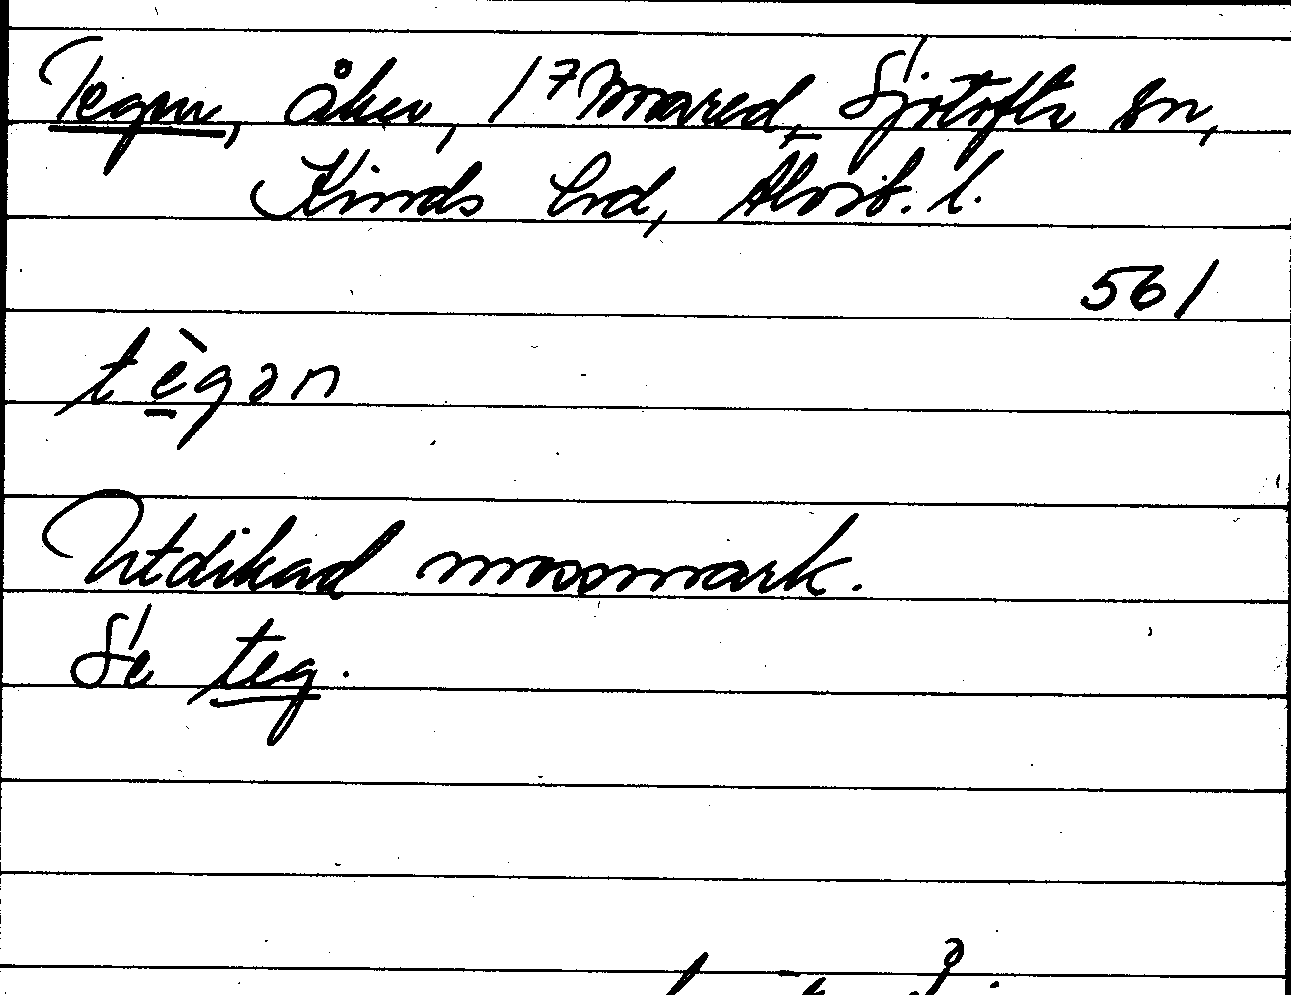 Tegen, åker, 1⁷ Mared, Sjötofta sn,
Kinds hd, Älvsb. l.
561
tègən
Utdikad mossmark.
Se teg.